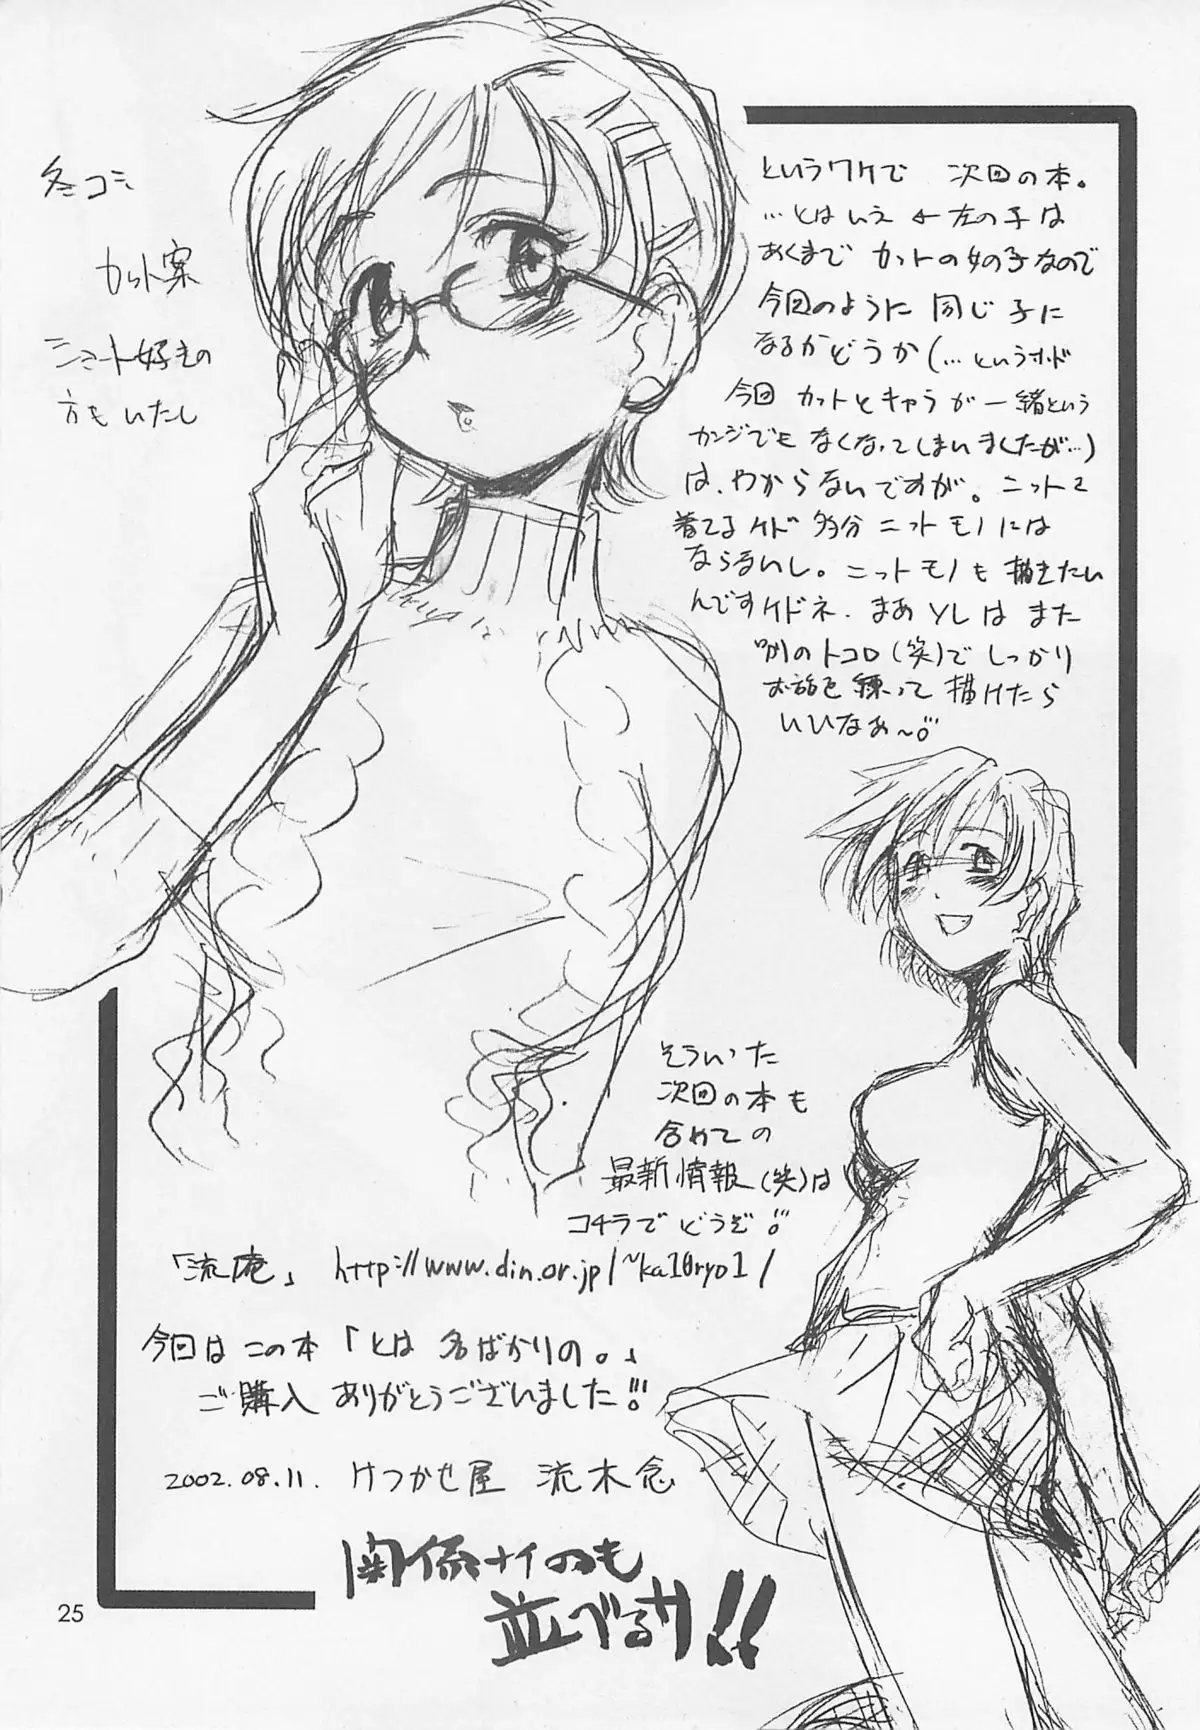 冬コミ
カット案
ショート好きの
方もいたし
というワケで 次回の本。
…とはいえ ←左の子は
あくまで カットの女の子なので
今回のように 同じ子に
なるかどうか(…というか
今回 カットとキャラが一緒という
カンジでもなくなってしまいましたが…)
は、わからないですが。ニット
着てるケド 多分 ニットモノには
ならないし。ニットモノも 描きたい
んですケドネ. まあソレはまた
別のトコロ(笑)でしっかり
お話を練って 描けたら
いいなぁ〜
そういった
次回の本も
含めての
最新情報(笑)は
コチラでどうぞ!!
「流庵」 http://www.din.or.jp/~ka10ryo1/
今回はこの本「とは名ばかりの。」
ご購入ありがとうございました!!!
2002.08.11. けつかせ屋 流木念
関係ナイのも
並べるサ!!
25